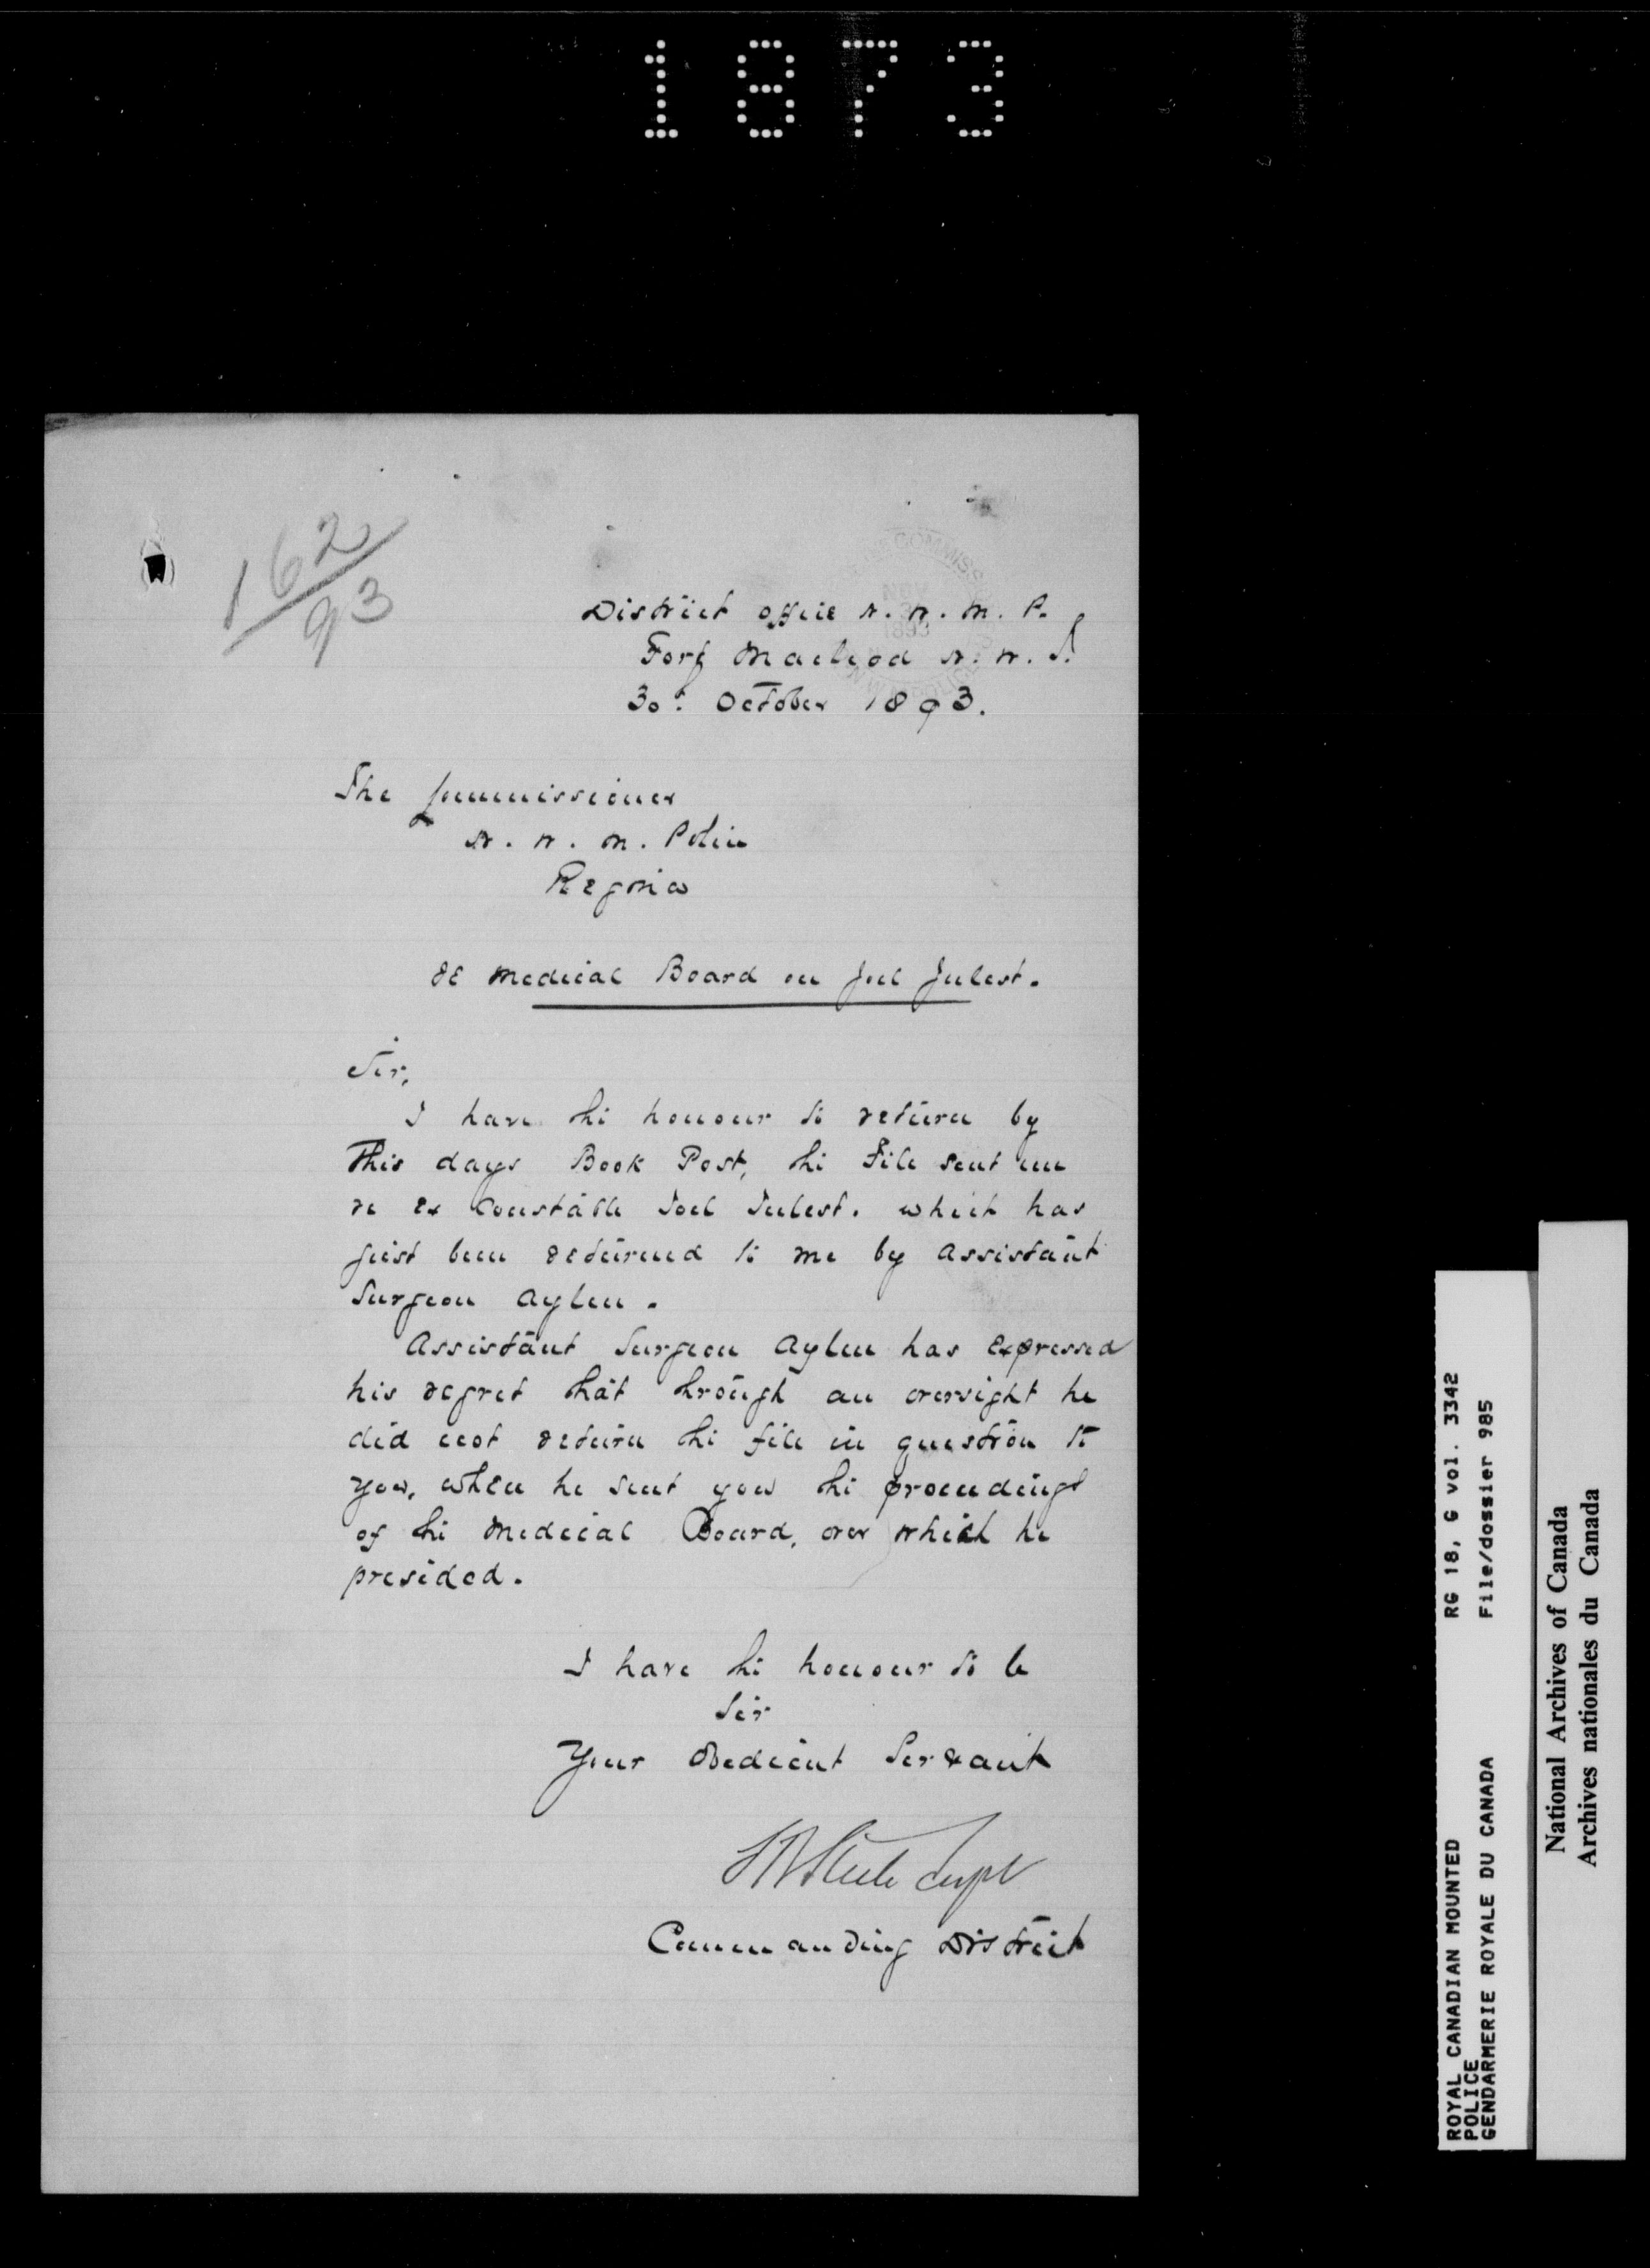 1873
162/93
COMMISS
NOV
3
1893
District Office N. W. M. P.
Fort Macleod N. W. T.
30th October 1893.
The Commissioner
N. W. M. Police
Regina
re Medical Board on Joel Julest.
Sir,
I have the honour to return by
This days Book Post, the File sent me
re Ex Constable Joel Julest. which has
just been returned to me by Assistant
Surgeon Aylen.
Assistant Surgeon Aylen has expressed
his regret that through an oversight he
did not return the file in question to
you, when he sent you the proceedings
of the Medical Board, over which he
presided.
I have the honour to be
Sir
Your Obedient Servant
S B Steele Supt
Commanding District
ROYAL CANADIAN MOUNTED POLICE
GENDARMERIE ROYALE DU CANADA
RG 18, G vol. 3342
File/dossier 985
National Archives of Canada
Archives nationales du Canada